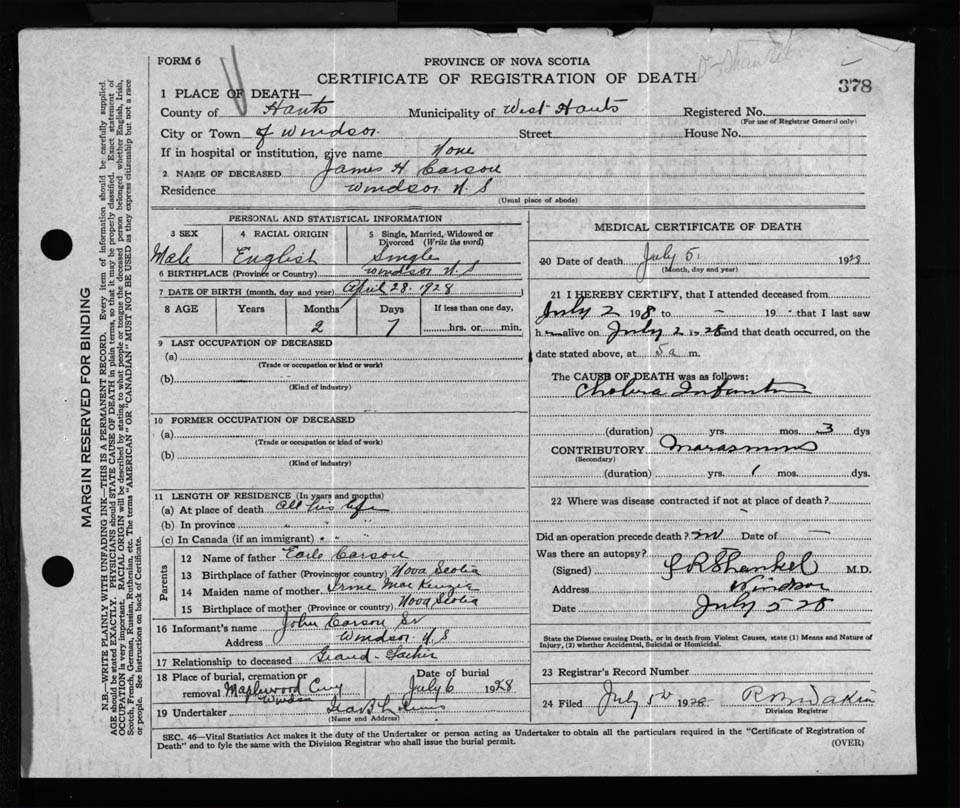 FORM 6
PROVINCE OF NOVA SCOTIA
CERTIFICATE OF REGISTRATION OF DEATH
378
1 PLACE OF DEATH—
County of Hants Municipality of West Hants Registered No.
(For use of Registrar General only)
City or Town of Windsor Street House No.
If in hospital or institution, give name None
2 NAME OF DECEASED James H Carson
Residence Windsor N.S
(Usual place of abode)
PERSONAL AND STATISTICAL INFORMATION
3 SEX 4 RACIAL ORIGIN 5 Single, Married, Widowed or Divorced (Write the word)
Male English Single
6 BIRTHPLACE (Province or Country) Windsor N.S
7 DATE OF BIRTH (month, day and year) April 28. 1928
8 AGE Years Months Days If less than one day,
2 7 hrs. or min.
9 LAST OCCUPATION OF DECEASED
(a)
(Trade or occupation or kind or work)
(b)
(Kind of industry)
10 FORMER OCCUPATION OF DECEASED
(a)
(Trade or occupation or kind of work)
(b)
(Kind of industry)
11 LENGTH OF RESIDENCE (In years and months)
(a) At place of death All his life
(b) In province " "
(c) In Canada (if an immigrant) " "
Parents
12 Name of father Earle Carson
13 Birthplace of father (Province or country) Nova Scotia
14 Maiden name of mother Irene MacKenzie
15 Birthplace of mother (Province or country) Nova Scotia
16 Informant's name John Carson Sr
Address Windsor N.S
17 Relationship to deceased Grand-father
18 Place of burial, cremation or removal Maplewood Cemy Windsor
Date of burial July 6 1928
19 Undertaker
(Name and Address)
MEDICAL CERTIFICATE OF DEATH
20 Date of death July 5. 1928
(Month, day and year)
21 I HEREBY CERTIFY, that I attended deceased from
July 2 1928 to - 19 that I last saw
h m alive on July 2 1928 and that death occurred, on the
date stated above, at 5 a m.
The CAUSE OF DEATH was as follows:
Cholera Infantum
(duration) yrs. mos. 3 dys
CONTRIBUTORY Marasmus
(Secondary)
(duration) yrs. 1 mos. dys.
22 Where was disease contracted if not at place of death?
-
Did an operation precede death? no Date of —
Was there an autopsy?
(Signed) G R Shankel M.D.
Address Windsor
Date July 5 28
State the Disease causing Death, or in death from Violent Causes, state (1) Means and Nature of
Injury, (2) whether Accidental, Suicidal or Homicidal.
23 Registrar's Record Number
24 Filed July 5th 1928
Division Registrar
SEC. 46—Vital Statistics Act makes it the duty of the Undertaker or person acting as Undertaker to obtain all the particulars required in the "Certificate of Registration of
Death" and to fyle the same with the Division Registrar who shall issue the burial permit.
(OVER)
MARGIN RESERVED FOR BINDING
N.B.—WRITE PLAINLY WITH UNFADING INK—THIS IS A PERMANENT RECORD. Every item of information should be carefully supplied.
AGE should be stated EXACTLY. PHYSICIANS should STATE CAUSE OF DEATH in plain terms, so that it may be properly classified. Exact statement of
OCCUPATION is very important. RACIAL ORIGIN will be described by stating to what people or tongue the deceased person belonged whether English, Irish,
Scotch, French, German, Russian, Ruthenian, etc. The terms "AMERICAN" OR "CANADIAN" MUST NOT BE USED as they express citizenship but not a race
or people. See instructions on back of Certificate.